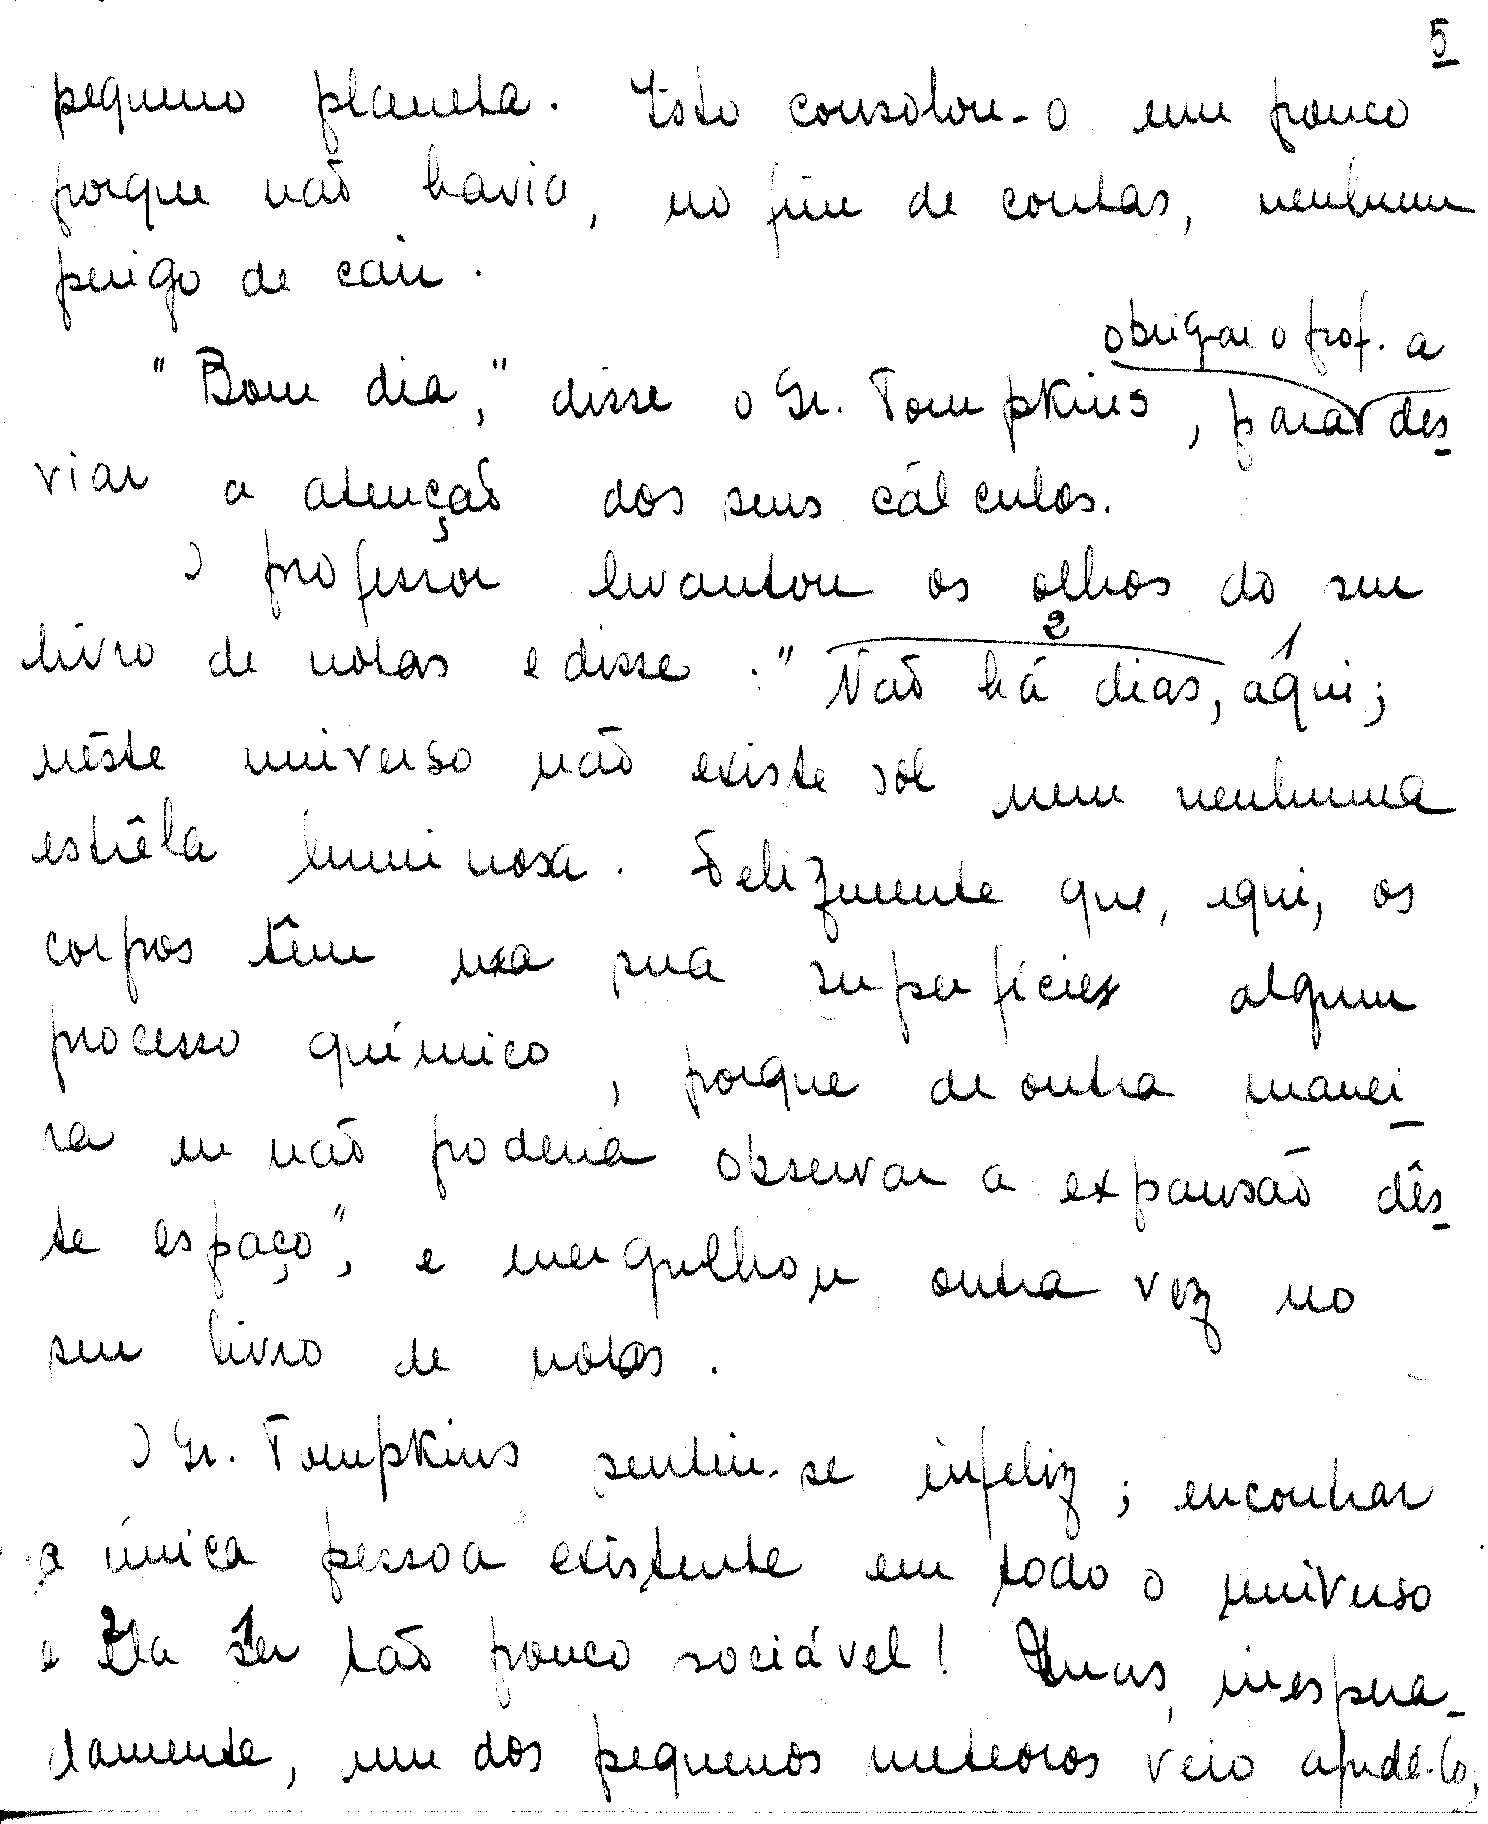 5
pequeno planeta. Isto consolou-o um pouco
porque não havia, no fim de contas, nenhum
perigo de cair.
obrigar o prof. a
"Bom dia," disse o Sr. Tompkins, para des-
viar a atenção dos seus cálculos.
O professor levantou os olhos do seu
livro de notas e disse: "Não há dias, aqui;
2 1
nêste universo não existe sol nem nenhuma
estrêla luminosa. Felizmente que, aqui, os
corpos têm na sua superfície algum
processo químico, porque de outra manei-
ra eu não poderia observar a expansão dês-
te espaço", e mergulhou outra vez no
seu livro de notas.
O Sr. Tompkins sentiu-se infeliz; encontrar
a única pessoa existente em todo o universo
e ela ser tão pouco sociável! Mas, inespera-
damente, um dos pequenos meteoros veio ajudá-lo,